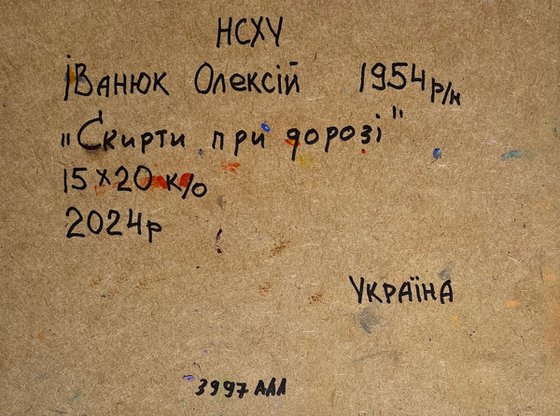 НСХУ
Іванюк Олексій 1954 р/н
"Скирти при дорозі"
15 x 20 к/о
2024р
Україна
3997 АЛЛ